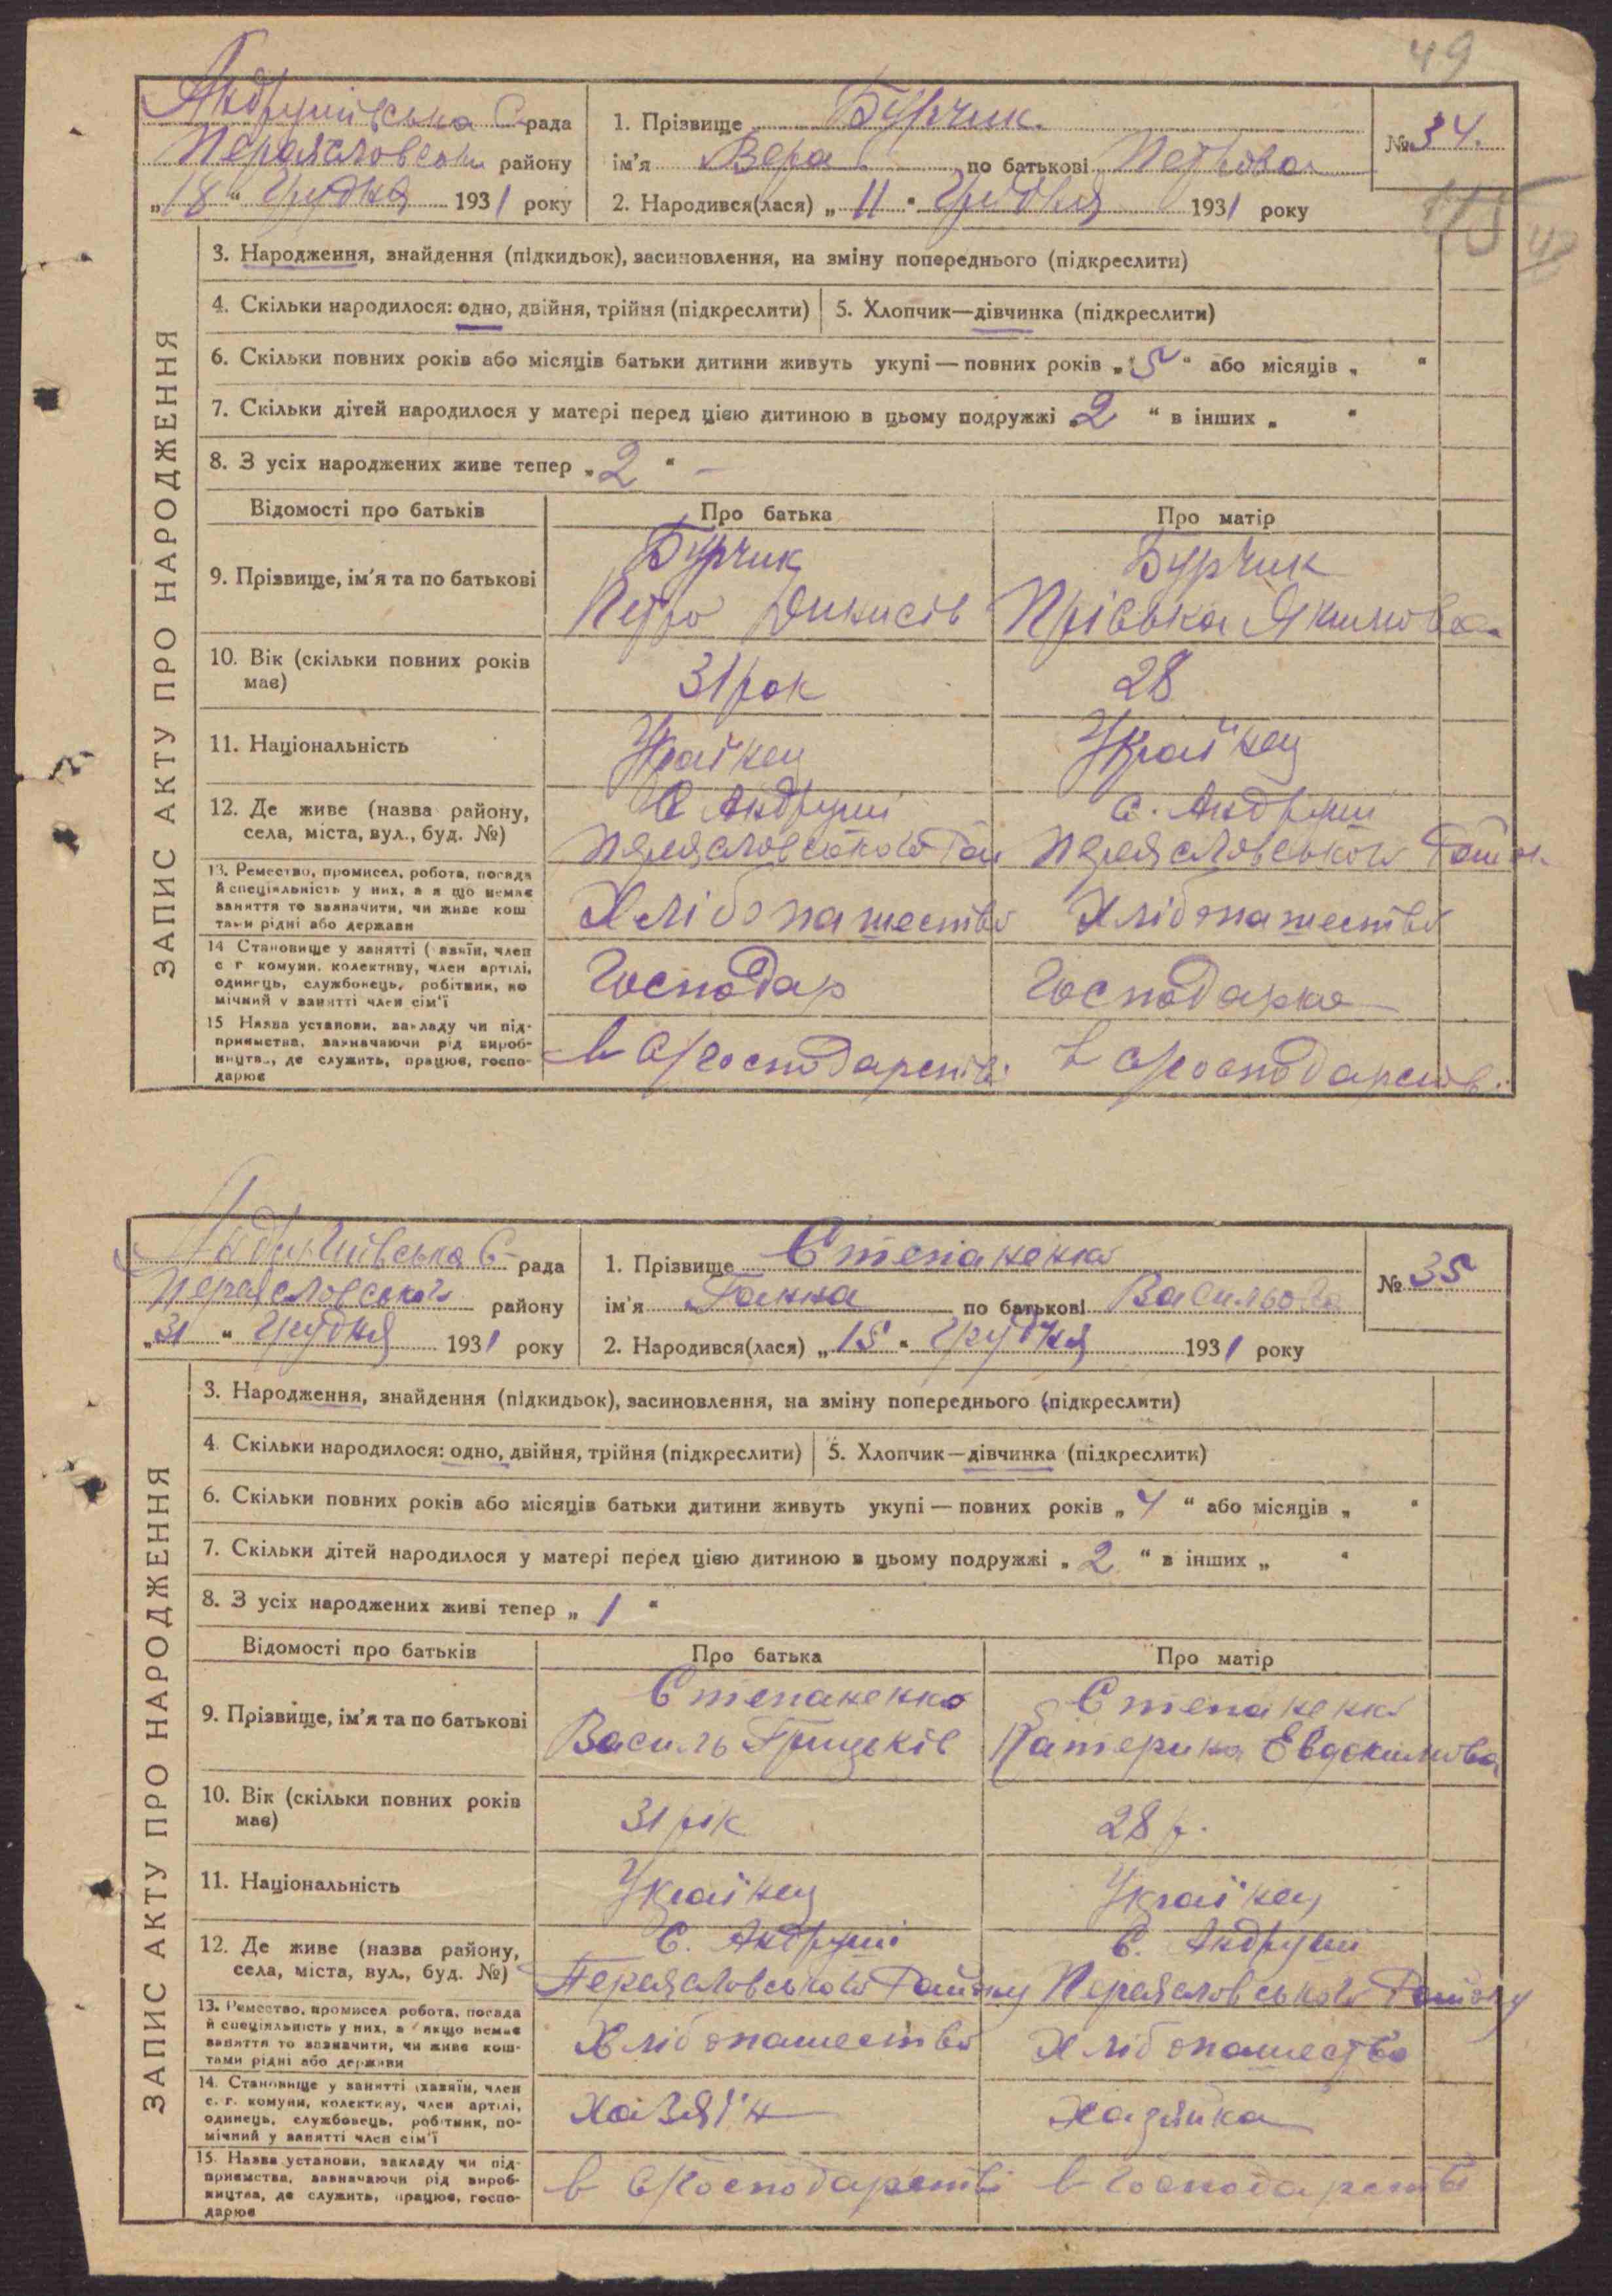 49
Андрушівська С рада
Переясловськ району
„18“ Грудня 1931 року
1. Прізвище Бурчик.
ім'я Вера по батькові Петрова
2. Народився(лася) „11“ Грудня 1931 року
№ 34.
ЗАПИС АКТУ ПРО НАРОДЖЕННЯ
3. Народження, знайдення (підкидьок), засиновлення, на зміну попереднього (підкреслити)
4. Скільки народилося: одно, двійня, трійня (підкреслити) 5. Хлопчик—дівчинка (підкреслити)
6. Скільки повних років або місяців батьки дитини живуть укупі — повних років „5“ або місяців „ “
7. Скільки дітей народилося у матері перед цією дитиною в цьому подружжі „2“ в інших „ “
8. З усіх народжених живе тепер „2“ —
Відомості про батьків Про батька Про матір
9. Прізвище, ім'я та по батькові
Бурчик
Петро Динисів
Бурчик
Пріська Якимова
10. Вік (скільки повних років
має)
31 рок
28
11. Національність
Українец
Українец
12. Де живе (назва району,
села, міста, вул., буд. №)
С Андруші
Переясловського Рай
с. Андруші
Переясловського Район
13. Ремество, промисел, робота, посада
й спеціяльність у них, а я що немає
заняття то зазначити, чи живе кош
тами рідні або держави
Хлібопашество
Хлібопашество
14 Становище у занятті (хазяїн, член
с г комуни, колективу, член артілі,
одинець, службовець, робітник, по
мічний у занятті член сім'ї
Господар
Господарка
15 Назва установи, закладу чи під-
приємства, зазначаючи рід вироб-
ництва, де служить, працює, госпо-
дарює
в с/господарстві
в с/господарств.
Андрушівська С рада
Переясловського району
„31“ Грудня 1931 року
1. Прізвище Степаненко
ім'я Ганна по батькові Васильова
2. Народився(лася) „15“ Грудня 1931 року
№ 35
ЗАПИС АКТУ ПРО НАРОДЖЕННЯ
3. Народження, знайдення (підкидьок), засиновлення, на зміну попереднього (підкреслити)
4. Скільки народилося: одно, двійня, трійня (підкреслити) 5. Хлопчик—дівчинка (підкреслити)
6. Скільки повних років або місяців батьки дитини живуть укупі — повних років „4“ або місяців „ “
7. Скільки дітей народилося у матері перед цією дитиною в цьому подружжі „2“ в інших „ “
8. З усіх народжених живі тепер „1“
Відомості про батьків Про батька Про матір
9. Прізвище, ім'я та по батькові
Степаненко
Василь Грицьків
Степаненко
Катерина Евдокимова
10. Вік (скільки повних років
має)
31 рік
28 р.
11. Національність
Українец
Українец
12. Де живе (назва району,
села, міста, вул., буд. №)
С. Андруші
Переясловського Району
С. Андруші
Переясловського Району
13. Ремество, промисел робота, посада
й спеціяльність у них, а якщо немає
заняття то зазначити, чи живе кош-
тами рідні або держави
Хлібопашество
Хлібопашество
14. Становище у занятті (хазяїн, член
с. г. комуни, колективу, член артілі,
одинець, службовець, робітник, по-
мічний у занятті член сім'ї
Хазяїн
Хазяйка
15. Назва установи, закладу чи під-
приємства, зазначаючи рід вироб-
ництва, де служить, працює, госпо-
дарює
в с/господарстві
в господарстві